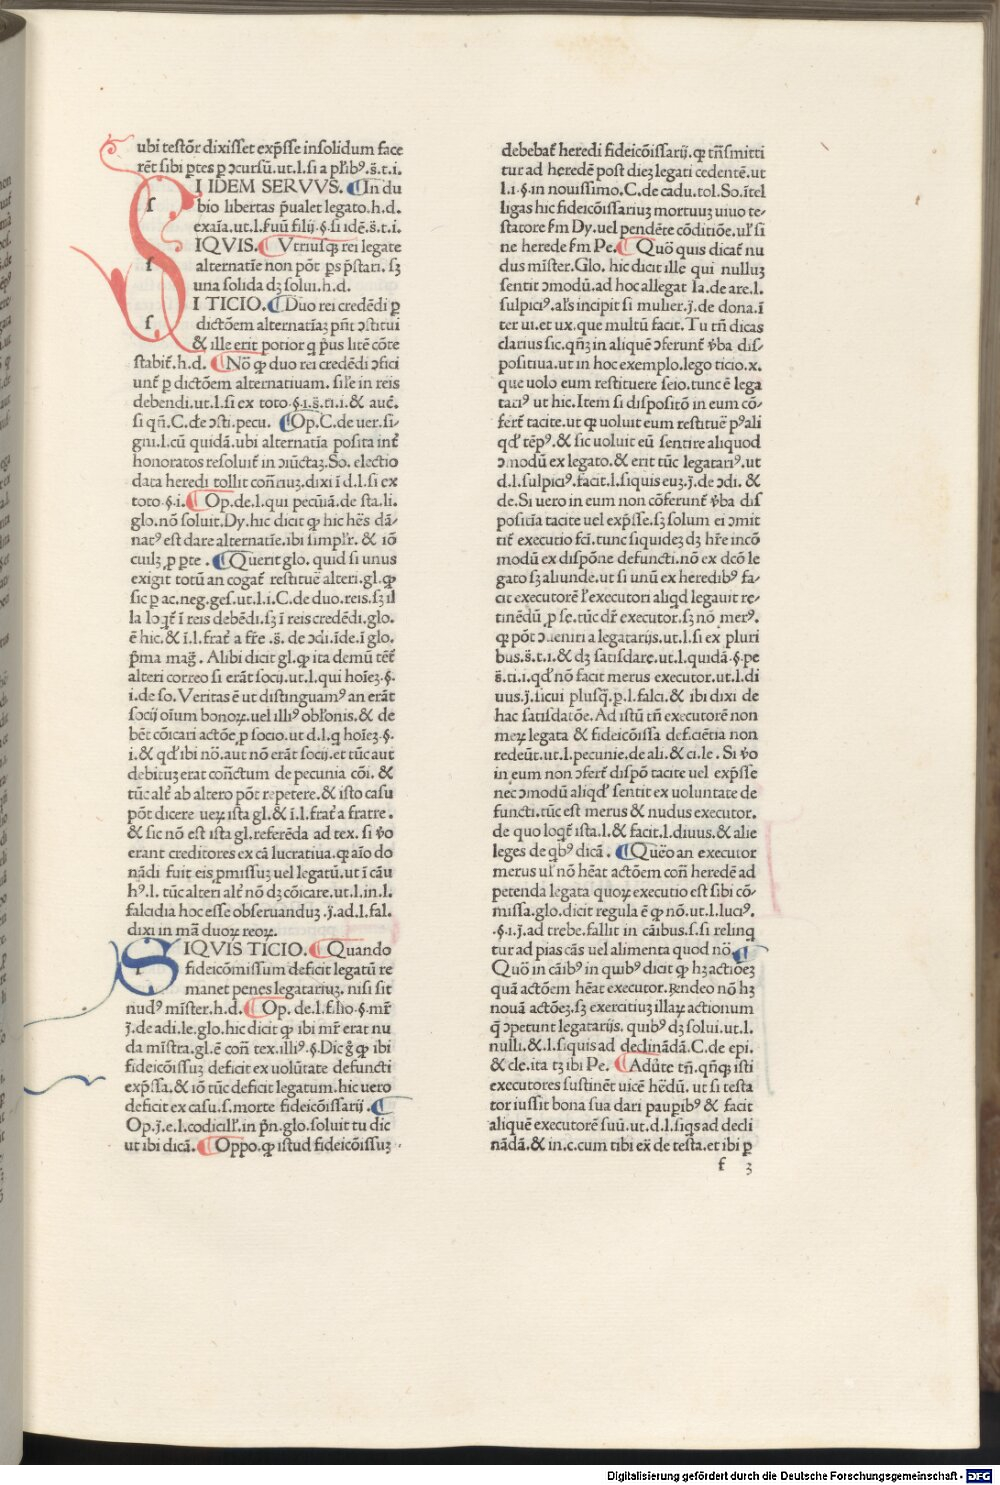 ubi testōr dixisset exp̄sse insolidum face
rēt sibi ptes p ↄcursū.ut.l.si a pl'ib⁹.s̄.t.i.
SI IDEM SERVVS. ¶In du
bio libertas p̄ualet legato.h.d.
exaīa.ut.l.fuū filij.§.si idē.s̄.t.i.
SIQVIS. ¶Vtriusqȝ rei legate
alternatīe non pōt ps p̄stari. sȝ
una solida dȝ solui.h.d.
SI TICIO. ¶Duo rei credēdi p
dictōem alternatīaȝ pn̄t ↄstitui
& ille erit potior q p̄us litē cōte
stabit̄.h.d. ¶Nō ꝙ duo rei credēdi ↄfici
unt̄ p dictōem alternatiuam. sil'e in reis
debendi.ut.l.si ex toto.§.i.s̄.ti.i.& auc̄.
si qn̄.C.de ↄsti.pecu. ¶Op.C.de uer.si-
gni.l.cū quidā.ubi alternatīa posita int̄
honoratos resoluit̄ in ↄiūctaȝ.So. electio
data heredi tollit con̄riuȝ.dixi ī d.l.si ex
toto.§.i. ¶Op.de.l.qui pecuīā.de sta.li.
glo.nō soluit.Dy.hic dicit ꝙ hic hēs dā-
nat⁹ est dare alternatīe.ibi simpl'r. & iō
cuilȝ p pte. ¶Querit glo. quid si unus
exigit totū an cogat̄ restituē alteri.gl.ꝙ
sic p ac.neg.ges.ut.l.i.C.de duo.reis.sȝ il
la loqt̄ ī reis debēdi.sȝ ī reis credēdi.glo.
ē hic.& ī.l.frat̄ a fr̄e.s̄. de ↄdi.īde.ī glo.
p̄ma mag̃. Alibi dicit gl.ꝙ ita demū tēt̄
alteri correo si erāt socij.ut.l.qui hoīeȝ.§.
i.de so. Veritas ē ut distinguam⁹ an erāt
socij oīum bonoꝝ.uel illi⁹ obl'onis. & de
bēt cōicari actōe p socio.ut d.l.q hoīeȝ.§.
i.& qd' ibi nō.aut nō erāt socij.et tūc aut
debituȝ erat con̄ctum de pecunia cōi. &
tūc alt̄ ab altero pōt repetere.& isto casu
pōt dicere ueꝝ ista gl.& ī.l.frat̄ a fratre.
& sic nō est ista gl.referēda ad tex. si ṽo
erant creditores ex cā lucratiua.ꝙ aīo do
nādi fuit eis pmissuȝ uel legatū.ut ī cāu
h⁹.l. tūc alteri alt̄ nō dȝ cōicare.ut.l.in.l.
falcidia hoc esse obseruanduȝ.j̄.ad.l.fal.
dixi in mā duoꝝ reoꝝ.
SIQVIS TICIO. ¶Quando
fideicōmissum deficit legatū re
manet penes legatariuȝ. nisi sit
nud⁹ mīster.h.d. ¶Op. de.l.filio.§.mr̄
j̄.de adi.le.glo.hic dicit ꝙ ibi mr̄ erat nu
da mīstra.gl.ē con̄ tex.illi⁹.§.Dic ḡ ꝙ ibi
fideicōissuȝ deficit ex uolūtate defuncti
exp̄ssa.& iō tūc deficit legatum.hic uero
deficit ex casu.s.morte fideicōissarij. ¶
Op.j̄.e.l.codicill'.in p̄n.glo.soluit tu dic
ut ibi dicā. ¶Oppo.ꝙ istud fideicōissuȝ
debebat̄ heredi fideicōissarij.ꝙ tn̄smitti
tur ad heredē post dieȝ legati cedentē.ut
l.i.§.in nouissimo.C.de cadu.tol.So.ītel
ligas hic fideicōissariuȝ mortuuȝ uiuo te-
statore fm Dy.uel pendēte cōditiōe.ul' si
ne herede fm Pe. ¶Quō quis dicat̄ nu
dus mīster.Glo. hic dicit ille qui nulluȝ
sentit ↄmodū.ad hoc allegat la.de are.l.
sulpici⁹.al's incipit si mulier.j̄.de dona.ī
ter ui.et ux.que multū facit. Tu tn̄ dicas
clarius sic.qn̄ȝ in aliquē ↄferunt̄ ṽba dis-
positiua.ut in hoc exemplo.lego ticio.x.
que uolo eum restituere seio.tunc ē lega
tari⁹ ut hic.Item si dispositō in eum cō-
fert̄ tacite.ut ꝙ uoluit eum restituē p⁹ali
qd' tēp⁹.& sic uoluit eū sentire aliquod
ↄmodū ex legato.& erit tūc legatari⁹.ut
d.l.sulpici⁹.facit.l.siquis euȝ.j̄.de ↄdi. &
de.Si uero in eum non cōferunt̄ ṽba dis
positīa tacite uel exp̄sse.sȝ solum ei ↄmit
tit̄ executio fci̅.tunc siquideȝ dȝ hr̄e incō
modū ex dispōne defuncti.nō ex dcō le
gato sȝ aliunde.ut si unū ex heredib⁹ fa-
cit executorē l' executori aliqd legauit re-
tinēdū p se.tūc dr̄ executor.sȝ nō mer⁹.
ꝙ pōt ↄueniri a legatarijs.ut.l.si ex pluri
bus.s̄.t.i.& dȝ satisdare.ut.l.quidā.§.pe
s̄.ti.i.qd' nō facit merus executor.ut.l.di
uus.j̄.sicui plusq̄.p.l.falci.& ibi dixi de
hac satisdatōe.Ad istū tn̄ executorē non
meꝝ legata & fideicōissa deficiētia non
redeūt.ut.l.pecunie.de ali.& ci.le. Si ṽo
in eum non ↄfert̄ dispō tacite uel exp̄sse
nec ↄmodū aliqd' sentit ex uoluntate de
functi.tūc est merus & nudus executor.
de quo loqt̄ ista.l.& facit.l.diuus.& alie
leges de qb⁹ dicā. ¶Quēo an executor
merus ul' nō hēat actōem con̄ heredē ad
petenda legata quoꝝ executio est sibi cō-
missa.glo.dicit regula ē ꝙ nō.ut.l.luci⁹.
.§.i.j̄.ad trebe.fallit in cāibus.s.si relinq
tur ad pias cās uel alimenta quod nō. ¶
Quō in cāib⁹ in quib⁹ dicit ꝙ hȝ actiōeȝ
quā actōem hēat executor.Rn̄deo nō hȝ
nouā actōeȝ.sȝ exercitiuȝ illaꝝ actionum
q̄ ↄpetunt legatarijs. quib⁹ dȝ solui.ut.l.
nulli.&.l.siquis ad declinādā.C.de epi.
& cle.ita tȝ ibi Pe. ¶Adūte tn̄.qn̄qȝ isti
executores sustinēt uicē hēdū. ut si testa
tor iussit bona sua dari paupib⁹ & facit
aliquē executorē suū.ut.d.l.siqs ad decli
nādā.& in.c.cum tibi ex̄ de testa.et ibi p
f 3
Digitalisierung gefördert durch die Deutsche Forschungsgemeinschaft - DFG